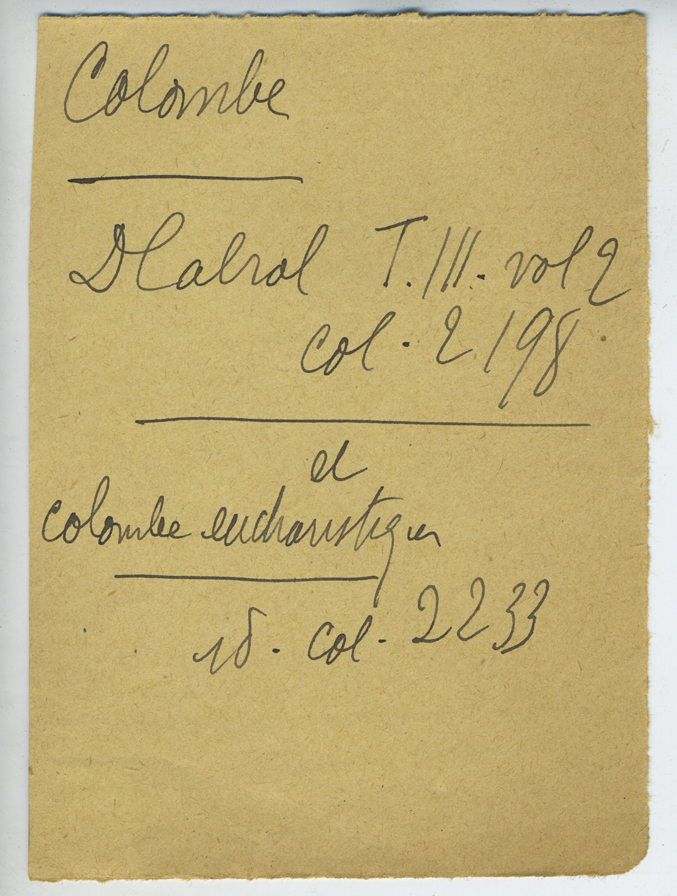 Colombe
D Cabrol T. III. vol 2
col. 2198.
et
colombe eucharistique
id. col. 2233